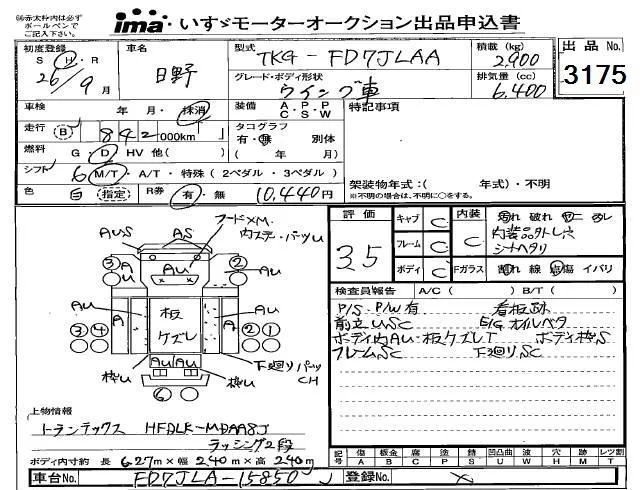 ※赤太枠内は必ず
ボールペンで
ご記入下さい。
ima いすゞモーターオークション出品申込書
初度登録 S H R 26/9月
車名 日野
型式 TKG-FD7JLAA
グレード・ボディ形状 ウイング車
積載(kg) 2,900
排気量(cc) 6,400
出品No. 3175
車検 年 月・抹消
装備 A・P・P C S W
特記事項
走行 B 842000km
タコグラフ 有・無 別体
燃料 G・D HV 他( )
( 年 月)
シフト 6 M/T・A/T・特殊(2ペダル・3ペダル)
架装物年式:( 年式)・不明
※不明の場合は、不明に○をする。
色 白 (指定) R券 有・無 10,440円
評価 3.5
キャブ C
フレーム C
ボディ C
内装 C
Fガラス
内装品外し穴
シートヘタリ
割れ 線 点傷 イバリ
検査員報告 A/C( ) B/T( )
P/S・P/W有 看板跡
前立USC E/Gオイルベタ
ボディ内AU・板ケズレT ボディ枠S
フレームSC 下廻りSC
フードXM
内ステーパーツU
AUS AS
③A AU ②
AU AU
A 板ケズレ A
③④ ②①
AU/AU
枠U 枠U
下廻りパーツCH
⑥
上物情報
トランテックス HFDLK-MDAA8J
ラッシング2段
ボディ内寸約 長 6.27m×幅 2.40m×高 2.40m
記号 傷A 板金B 腐C 塗P 錆S 凹凸曲U 波W 穴H 跡M 減T レツ割
車台No. FD7JLA-15850
登録No.